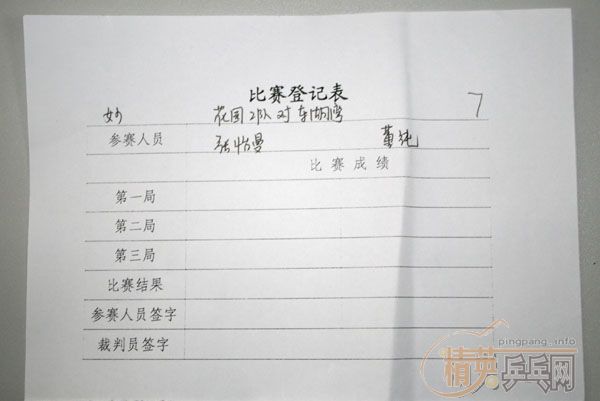 比赛登记表
花园2队对东湖湾 7
参赛人员 张怡曼 董纯
比赛成绩
第一局
第二局
第三局
比赛结果
参赛人员签字
裁判员签字
pingpang.info
精英乒乓网